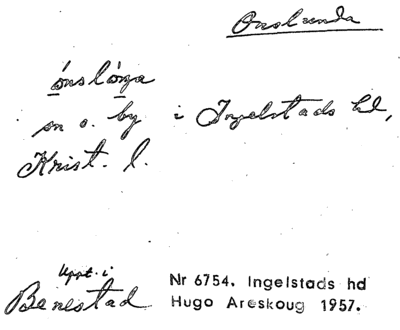 Onslunda
ónslóŋa
sn o. by i Ingelstads hd,
Krist. l.
Uppt. i
Benestad
Nr 6754. Ingelstads hd
Hugo Areskoug 1957.